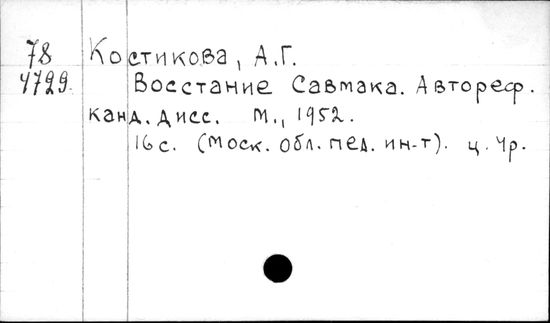 78 Костикова, А.Г.
4729. Восстание Савмака. Автореф.
канд. дисс. М., 1952.
16 с. (Моск. обл. пед. ин-т). ц. 4р.